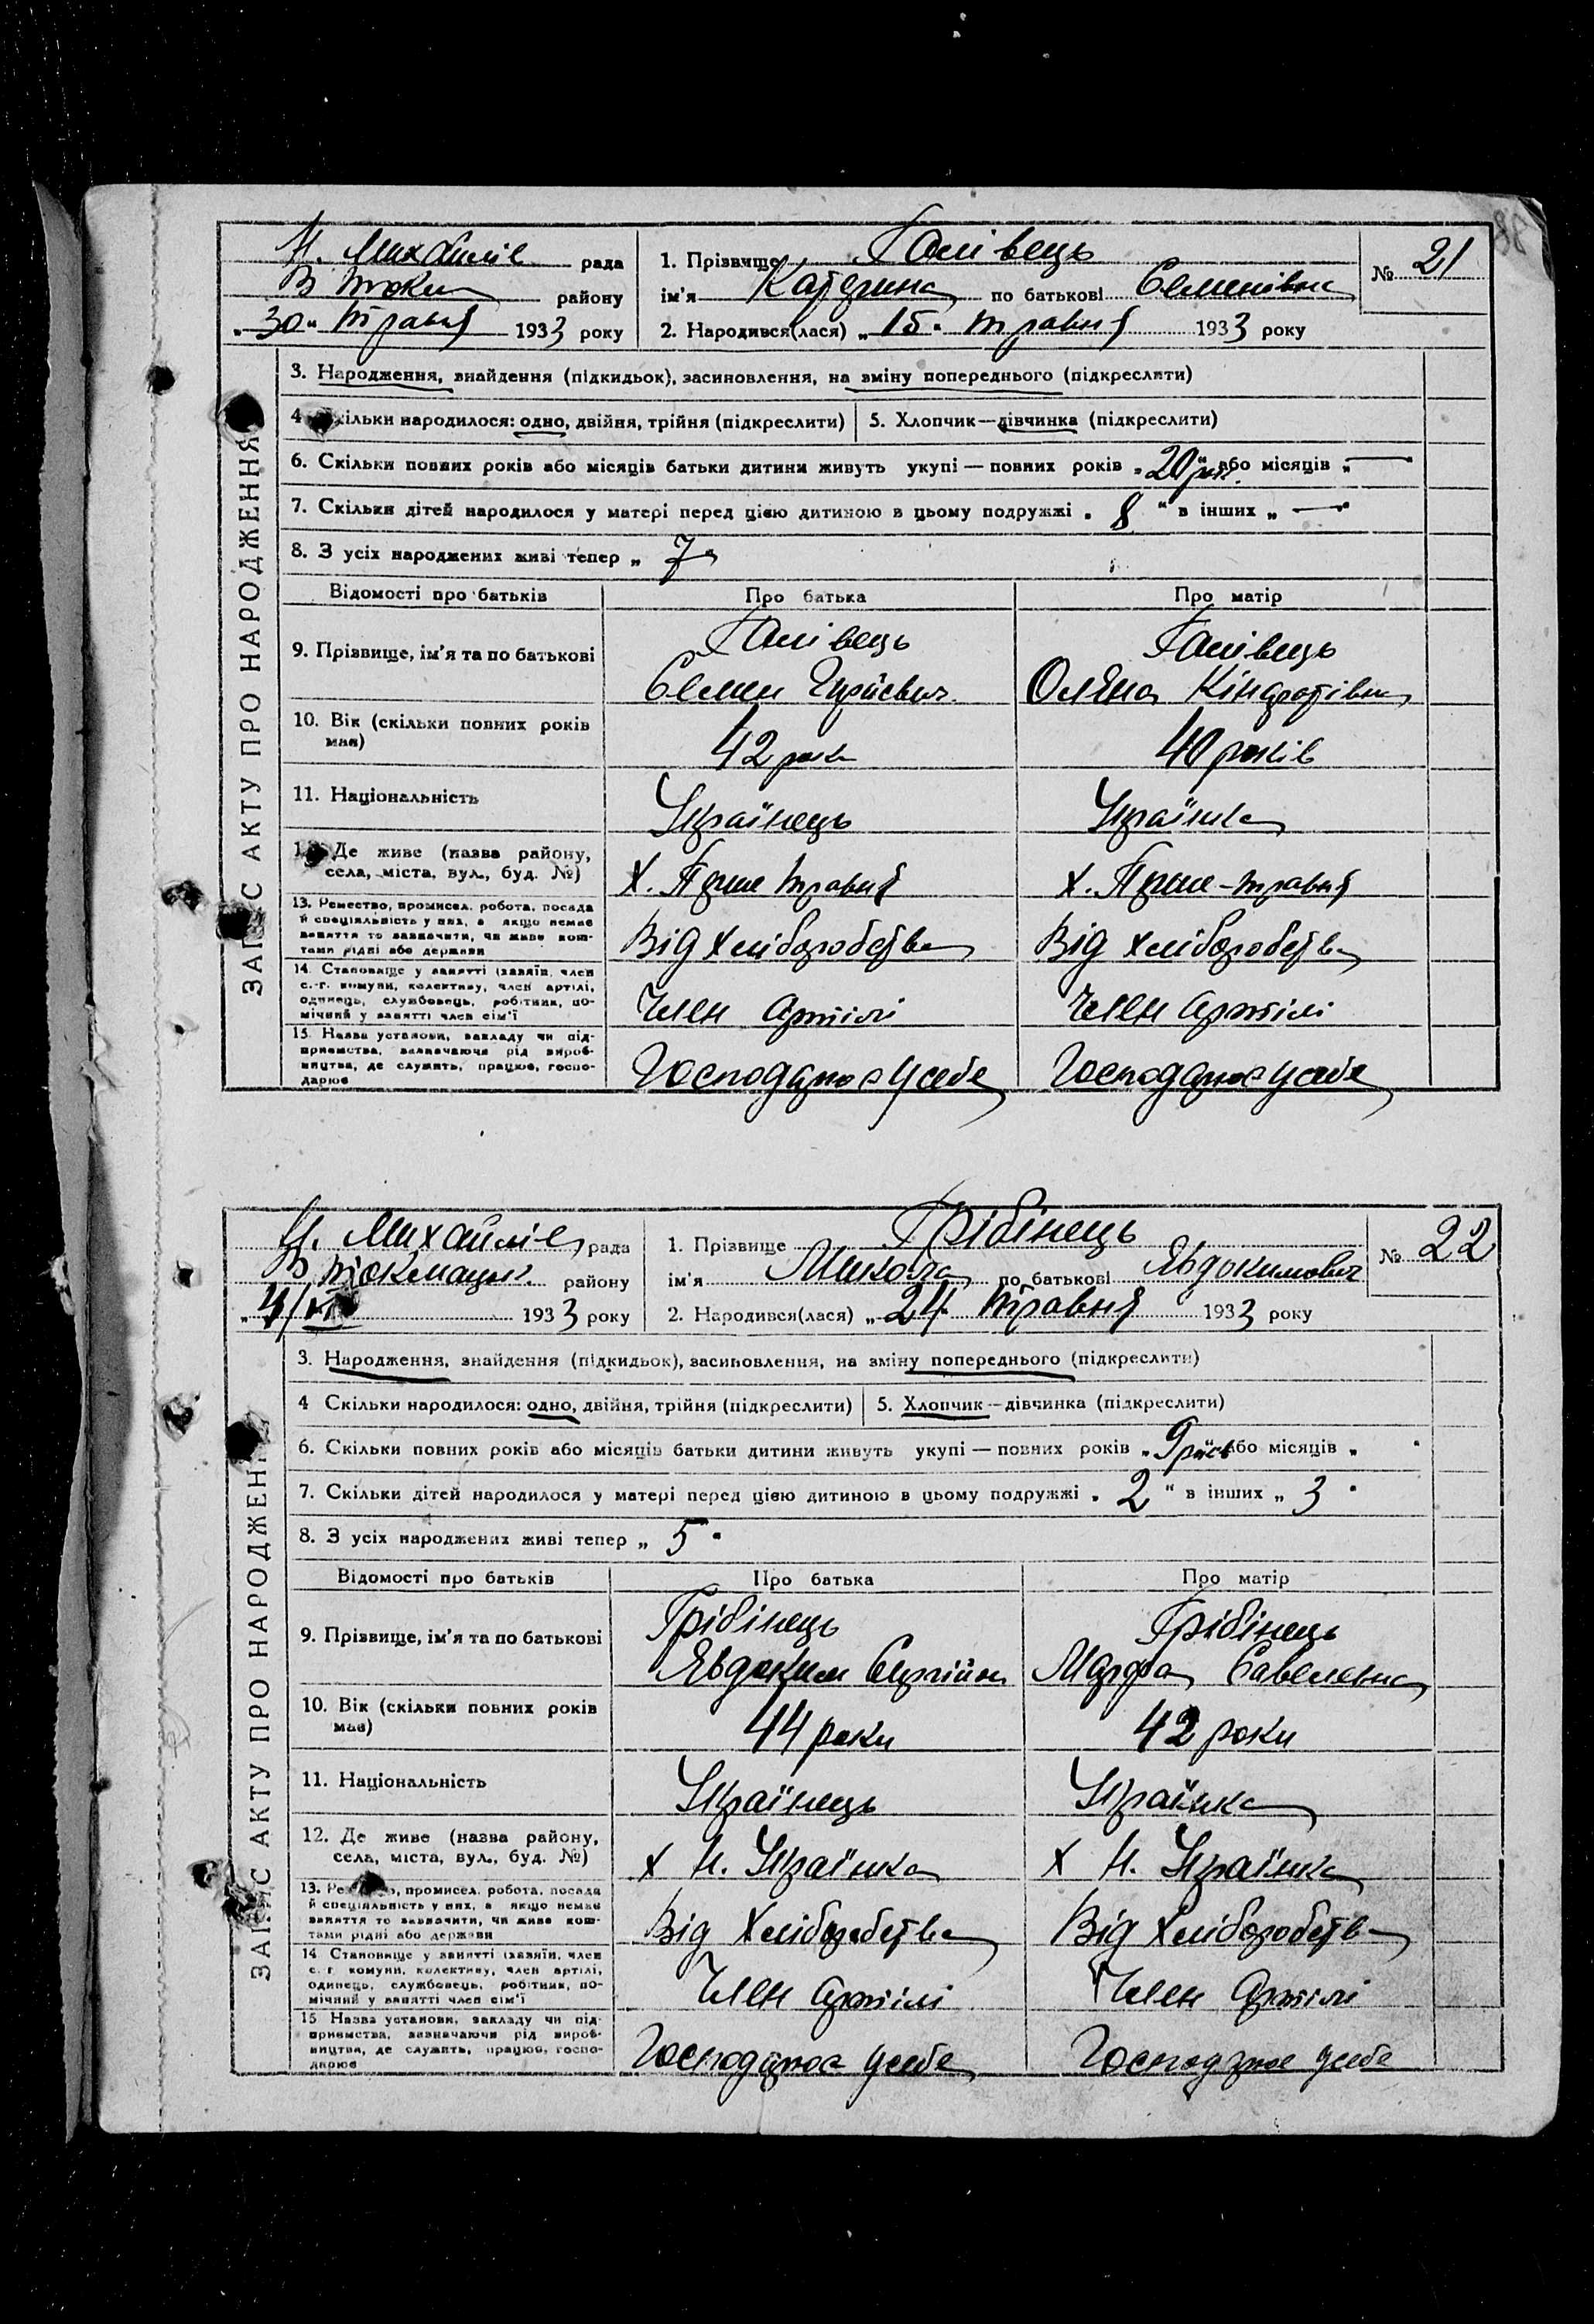 Н. Михайлів рада
В Токм району
„30“ травня 1933 року
1. Прізвище Галівець
ім'я Катерина по батькові Семенівна
№ 21
2. Народився(лася) „15“ травня 1933 року
ЗАПИС АКТУ ПРО НАРОДЖЕННЯ
3. Народження, знайдення (підкидьок), засиновлення, на зміну попереднього (підкреслити)
4 Скільки народилося: одно, двійня, трійня (підкреслити)
5. Хлопчик—дівчинка (підкреслити)
6. Скільки повних років або місяців батьки дитини живуть укупі — повних років „20 рок.“ або місяців „—“
7. Скільки дітей народилося у матері перед цією дитиною в цьому подружжі „8“ в інших „—“
8. З усіх народжених живі тепер „7“
Відомості про батьків Про батька Про матір
9. Прізвище, ім'я та по батькові
Галівець
Семен
Галівець
Оляна Кіндратівна
10. Вік (скільки повних років має)
42 роки
40 років
11. Національність
Українець
Українка
12. Де живе (назва району, села, міста, вул., буд. №)
Х. Перше травня
Х. Перше-травня
13. Ремество, промисел, робота, посада й спеціяльність у них, а якщо немає заняття то зазначити, чи живе коштами рідні або держави
Від хліборобства
Від хліборобства
14. Становище у занятті (хазяїн, член с.-г. комуни, колективу, член артілі, одинець, службовець, робітник, помічний у занятті член сім'ї
Член артілі
Член артілі
15. Назва установи, закладу чи підприємства, зазначаючи рід виробництва, де служить, працює, господарює
Господарює у себе
Господарює у себе
Н. Михайлів рада
В Токмацьк. району
4/VI 1933 року
1. Прізвище Грібінець
ім'я Микола по батькові Явдокимович
№ 22
2. Народився(лася) „24“ травня 1933 року
ЗАПИС АКТУ ПРО НАРОДЖЕННЯ
3. Народження, знайдення (підкидьок), засиновлення, на зміну попереднього (підкреслити)
4 Скільки народилося: одно, двійня, трійня (підкреслити)
5. Хлопчик—дівчинка (підкреслити)
6. Скільки повних років або місяців батьки дитини живуть укупі — повних років „9 років“ або місяців „ “
7. Скільки дітей народилося у матері перед цією дитиною в цьому подружжі „2“ в інших „3“
8. З усіх народжених живі тепер „5“
Відомості про батьків Про батька Про матір
9. Прізвище, ім'я та по батькові
Грібінець
Явдоким
Грібінець
Марфа Савелевна
10. Вік (скільки повних років має)
44 роки
42 роки
11. Національність
Українець
Українка
12. Де живе (назва району, села, міста, вул., буд. №)
Х Н. Українка
Х Н. Українка
13. Ремество, промисел, робота, посада й спеціяльність у них, а якщо немає заняття то зазначити, чи живе коштами рідні або держави
Від Хліборобства
Від Хліборобства
14. Становище у занятті (хазяїн, член с.-г. комуни, колективу, член артілі, одинець, службовець, робітник, помічний у занятті член сім'ї
Член артілі
Член артілі
15 Назва установи, закладу чи підприємства, зазначаючи рід виробництва, де служить, працює, господарює
Господарює у себе
Господарює у себе